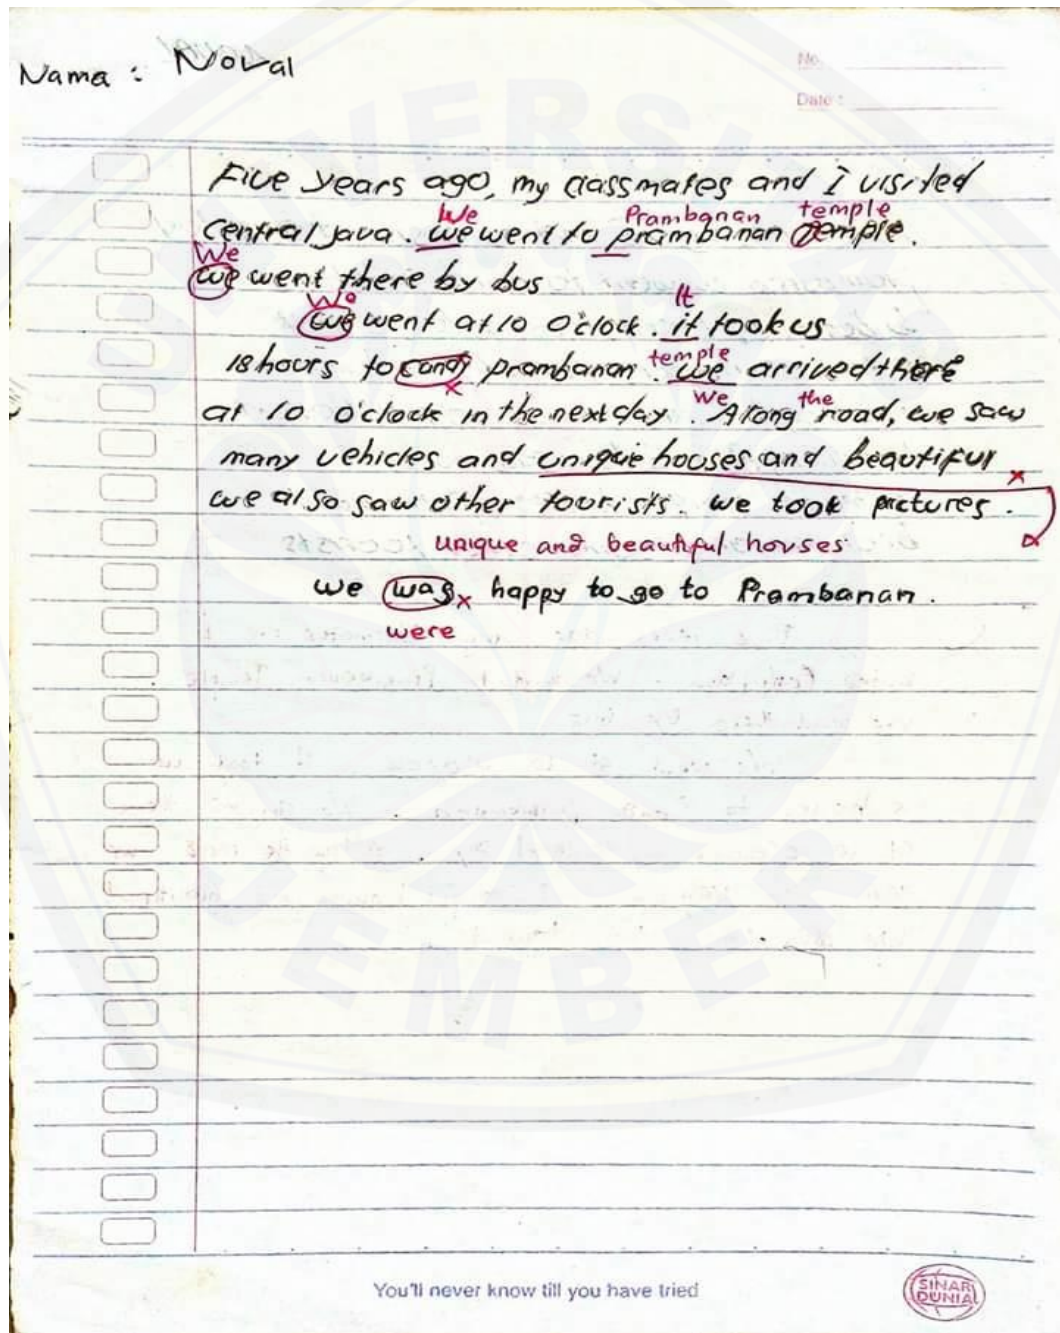 Nama : Noval
No.
Date :
Five years ago, my classmates and I visited
We Prambanan temple
Central java. we went to prambanan Temple.
We
we went there by bus
We It
we went at 10 O'clock. it took us
temple
18 hours to candy prambanan. we arrived there
We the
at 10 o'clock in the next day. Along road, we saw
many vehicles and unique houses and beautiful
we also saw other tourists. we took pictures.
unique and beautiful houses
we was happy to go to Prambanan.
were
You'll never know till you have tried
SINAR
DUNIA
UNIVERSITAS
JEMBER